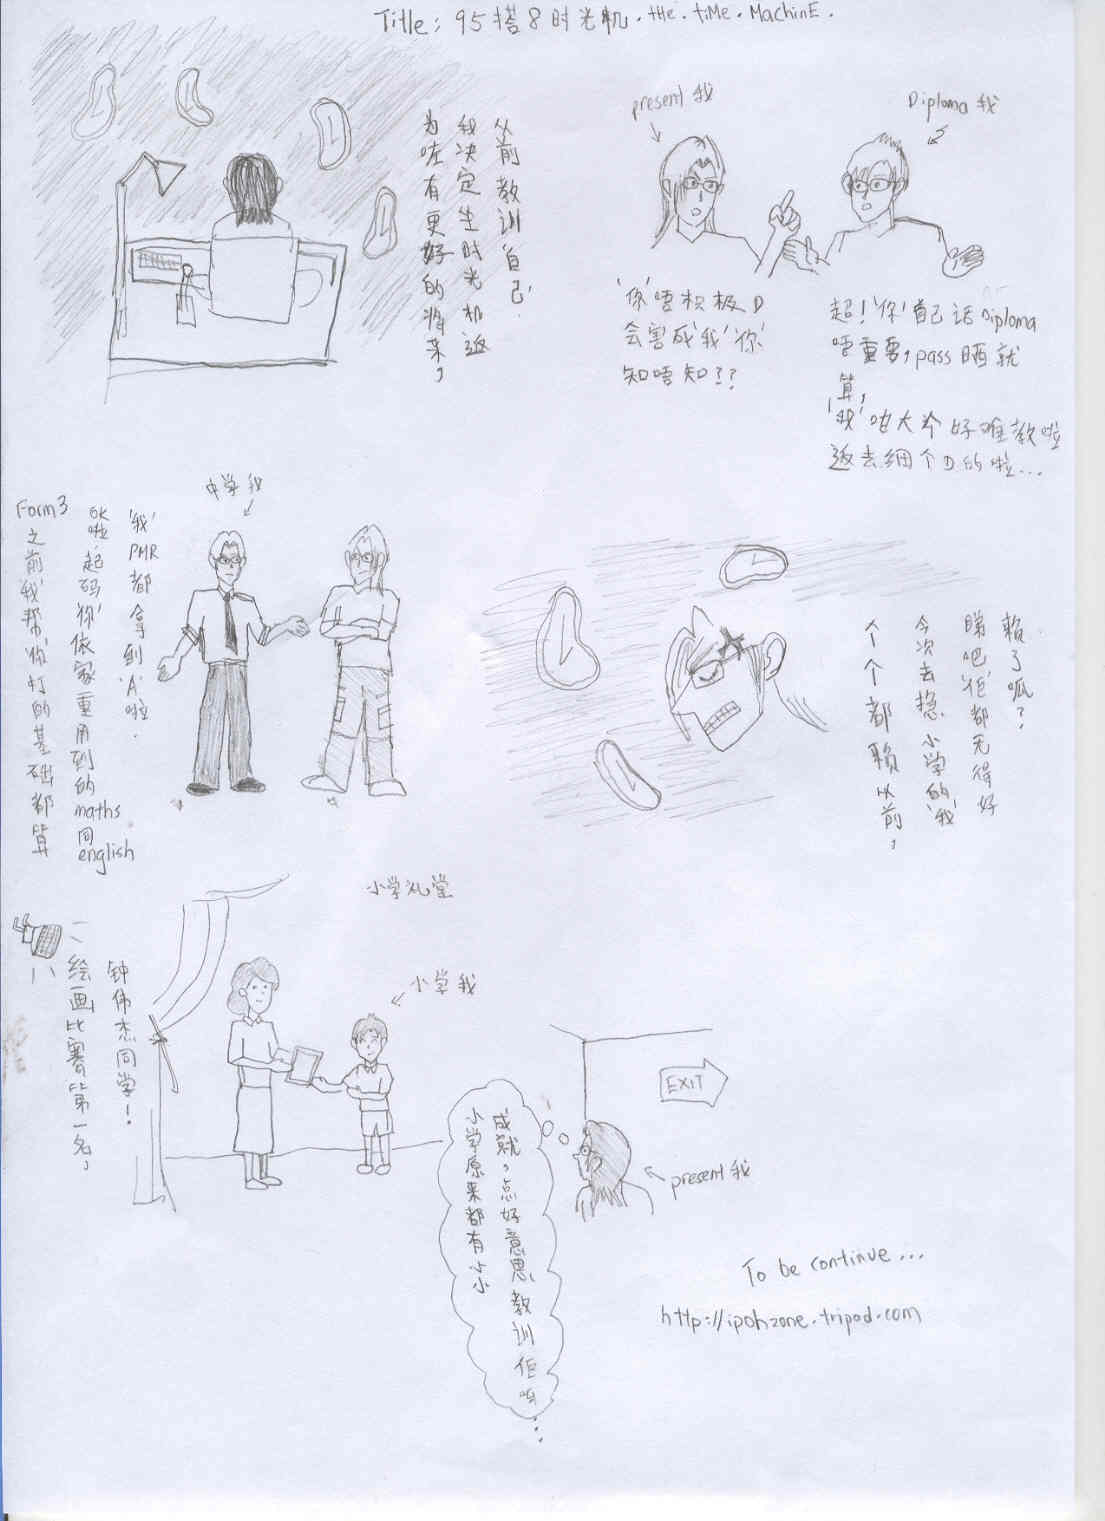 Title: 95搭8时光机.tHe.tiMe.MachinE.
为咗有更好的将来,
我决定坐时光机返
从前教训自己.
present我
Diploma我
'你'唔积极D
会害成'我''你'
知唔知??
超!'你'自己话Diploma
唔重要,pass晒就
算,
'我'咁大个好难教啦
返去细个D的啦...
中学我
Form 3之前'我'帮'你'打的基础都算
OK啦.起码'你'依家重用到的maths同english
'我'PMR都拿到'A'啦.
个个都赖以前,
今次去揾小学的'我'
睇吧'佢'都无得好
赖了呱?
小学礼堂
小学我
绘画比赛第一名,
钟伟杰同学!
小学原来都有小小
成就。点好意思教训佢
EXIT
present我
To be continue...
http://ipohzone.tripod.com